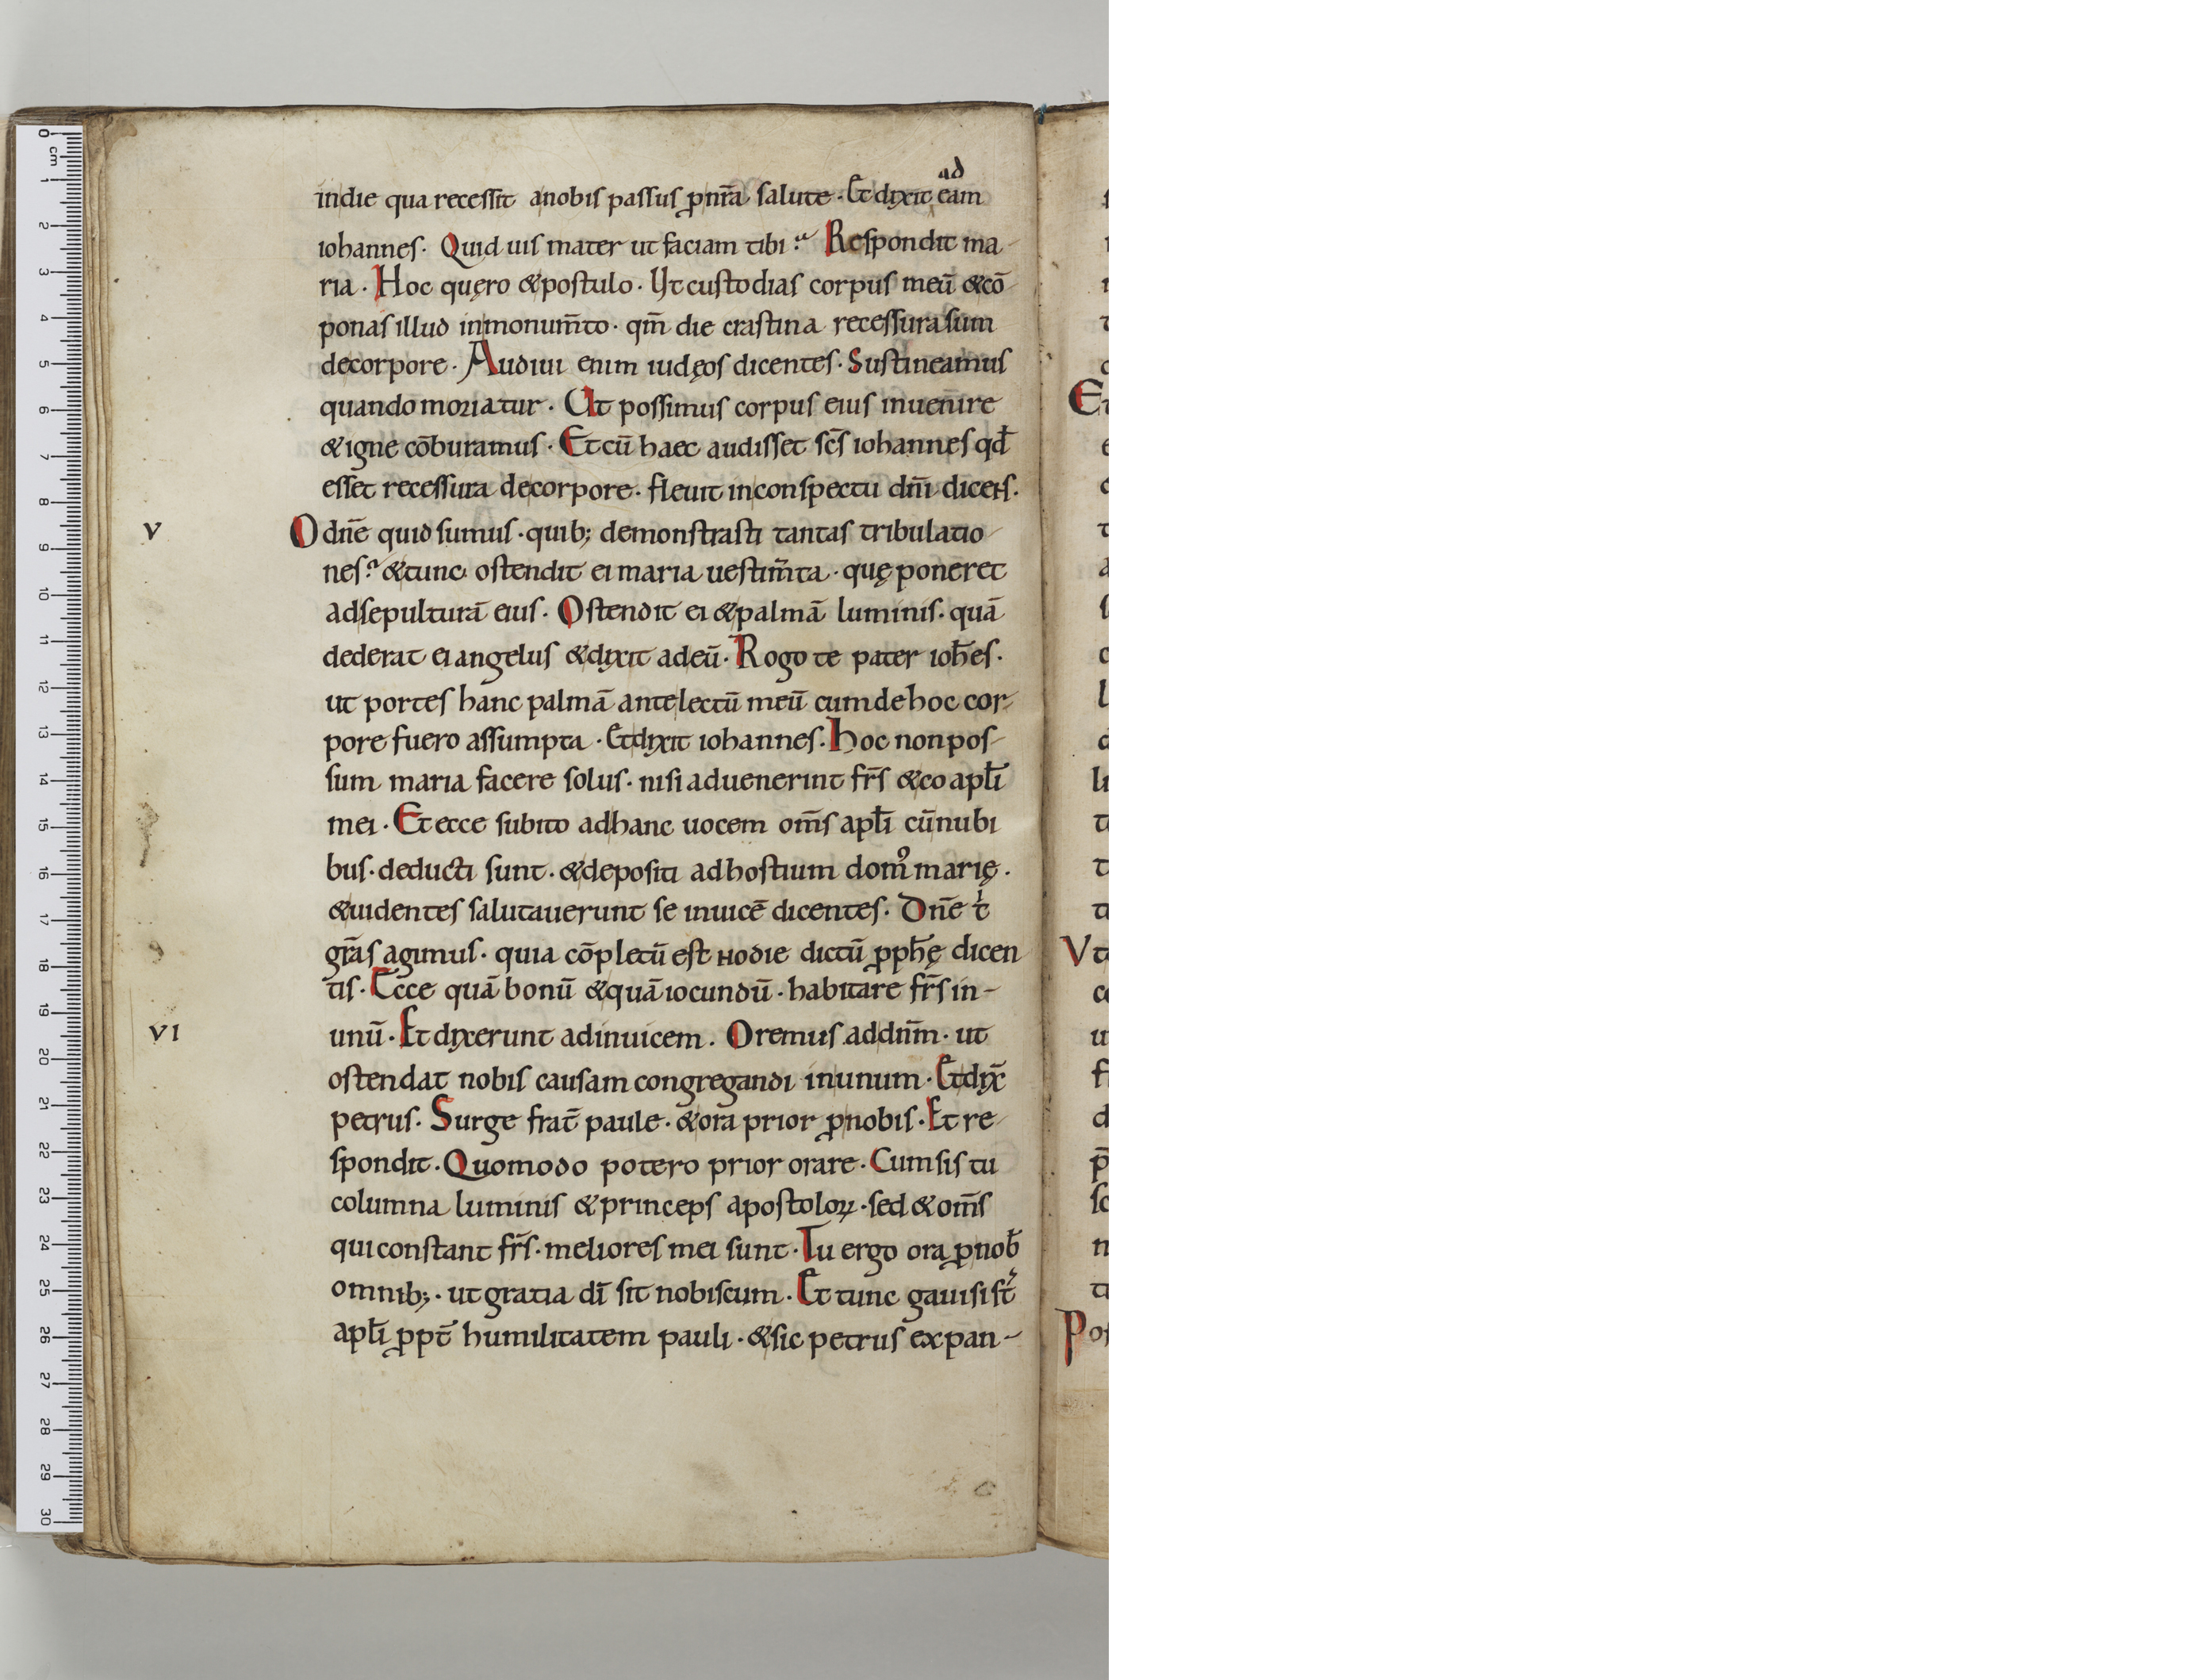 ad
indie qua recessit anobis passus ꝓnr̄a salute · Et dixit eam
iohannes · Quid uis mater ut faciam tibi? Respondit ma-
ria · Hoc quęro &postulo · Ut custodias corpus meū &cō-
ponas illud inmonum̄to · qm̄ die crastina recessura sum
decorpore · Audiui enim iudęos dicentes · Sustineamus
quando moriatur · Ut possimus corpus eius inuenire
&igne cōburamus · Et cū haec audisset sc̄s iohannes qd̄
esset recessura decorpore · fleuit inconspectu dn̄i dicens.
V
O dn̄e quid sumus · quib; demonstrasti tantas tribulatio-
nes? &tunc ostendit ei maria uestim̄ta · quę poneret
adsepulturā eius · Ostendit ei &palmā luminis · quā
dederat ei angelus &dixit adeū · Rogo te pater ioh̄es ·
ut portes hanc palmā antelectū meū cumdehoc cor-
pore fuero assumpta · Et dixit iohannes · Hoc nonpos-
sum maria facere solus · nisi aduenerint fr̄s &coapl̄i
mei · Et ecce subito adhanc uocem om̄s apl̄i cūnubi
bus · deducti sunt · &depositi adhostium domꝰ marię ·
&uidentes salutauerunt se inuicē dicentes · Dn̄e t̄
gr̄as agimus · quia cōpletū est hodie dictū ꝓph̄ę dicen
tis · Ecce quā bonū &quā iocundū · habitare fr̄s in-
VI
unū · Et dixerunt adinuicem · Oremus addn̄m · ut
ostendat nobis causam congregandi inunum · Et dix̄
petrus · Surge frat̄ paule · &ora prior ꝓnobis · Et re-
spondit · Quomodo potero prior orare · Cumsis tu
columna luminis &princeps apostoloꝝ · sed &om̄s
qui constant fr̄s · meliores mei sunt · Tu ergo ora ꝓnob̄
omnib; · ut gratia dī sit nobiscum · Et tunc gauisi st̄
apl̄i ꝓpt̄ humilitatem pauli · &sic petrus expan-